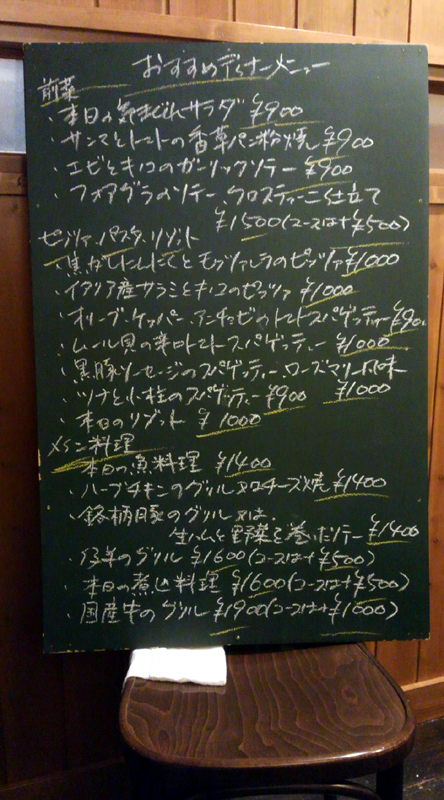 おすすめディナーメニュー
前菜
・本日の気まぐれサラダ ¥900
・サンマとトマトの香草パン粉焼 ¥900
・エビとキノコのガーリックソテー ¥900
・フォアグラのソテー、クロスティーニ仕立て
¥1500(コースは+¥500)
ピッツァ、パスタ、リゾット
・焦がしにんにくとモッツァレラのピッツァ ¥1000
・イタリア産サラミとキノコのピッツァ ¥1000
・オリーブ・ケッパー、アンチョビのトマトスパゲッティー ¥900
・ムール貝の辛口トマトスパゲッティー ¥1000
・黒豚ソーセージのスパゲッティーローズマリー風味
¥1000
・ツナと小柱のスパゲッティー ¥900
・本日のリゾット ¥1000
メイン料理
・本日の魚料理 ¥1400
・ハーブチキンのグリル 又はチーズ焼 ¥1400
・銘柄豚のグリル 又は、
生ハムと野菜を巻いたソテー ¥1400
・仔羊のグリル ¥1600(コースは+¥500)
・本日の煮込料理 ¥1600(コースは+¥500)
・国産牛のグリル ¥1900(コースは+¥1000)